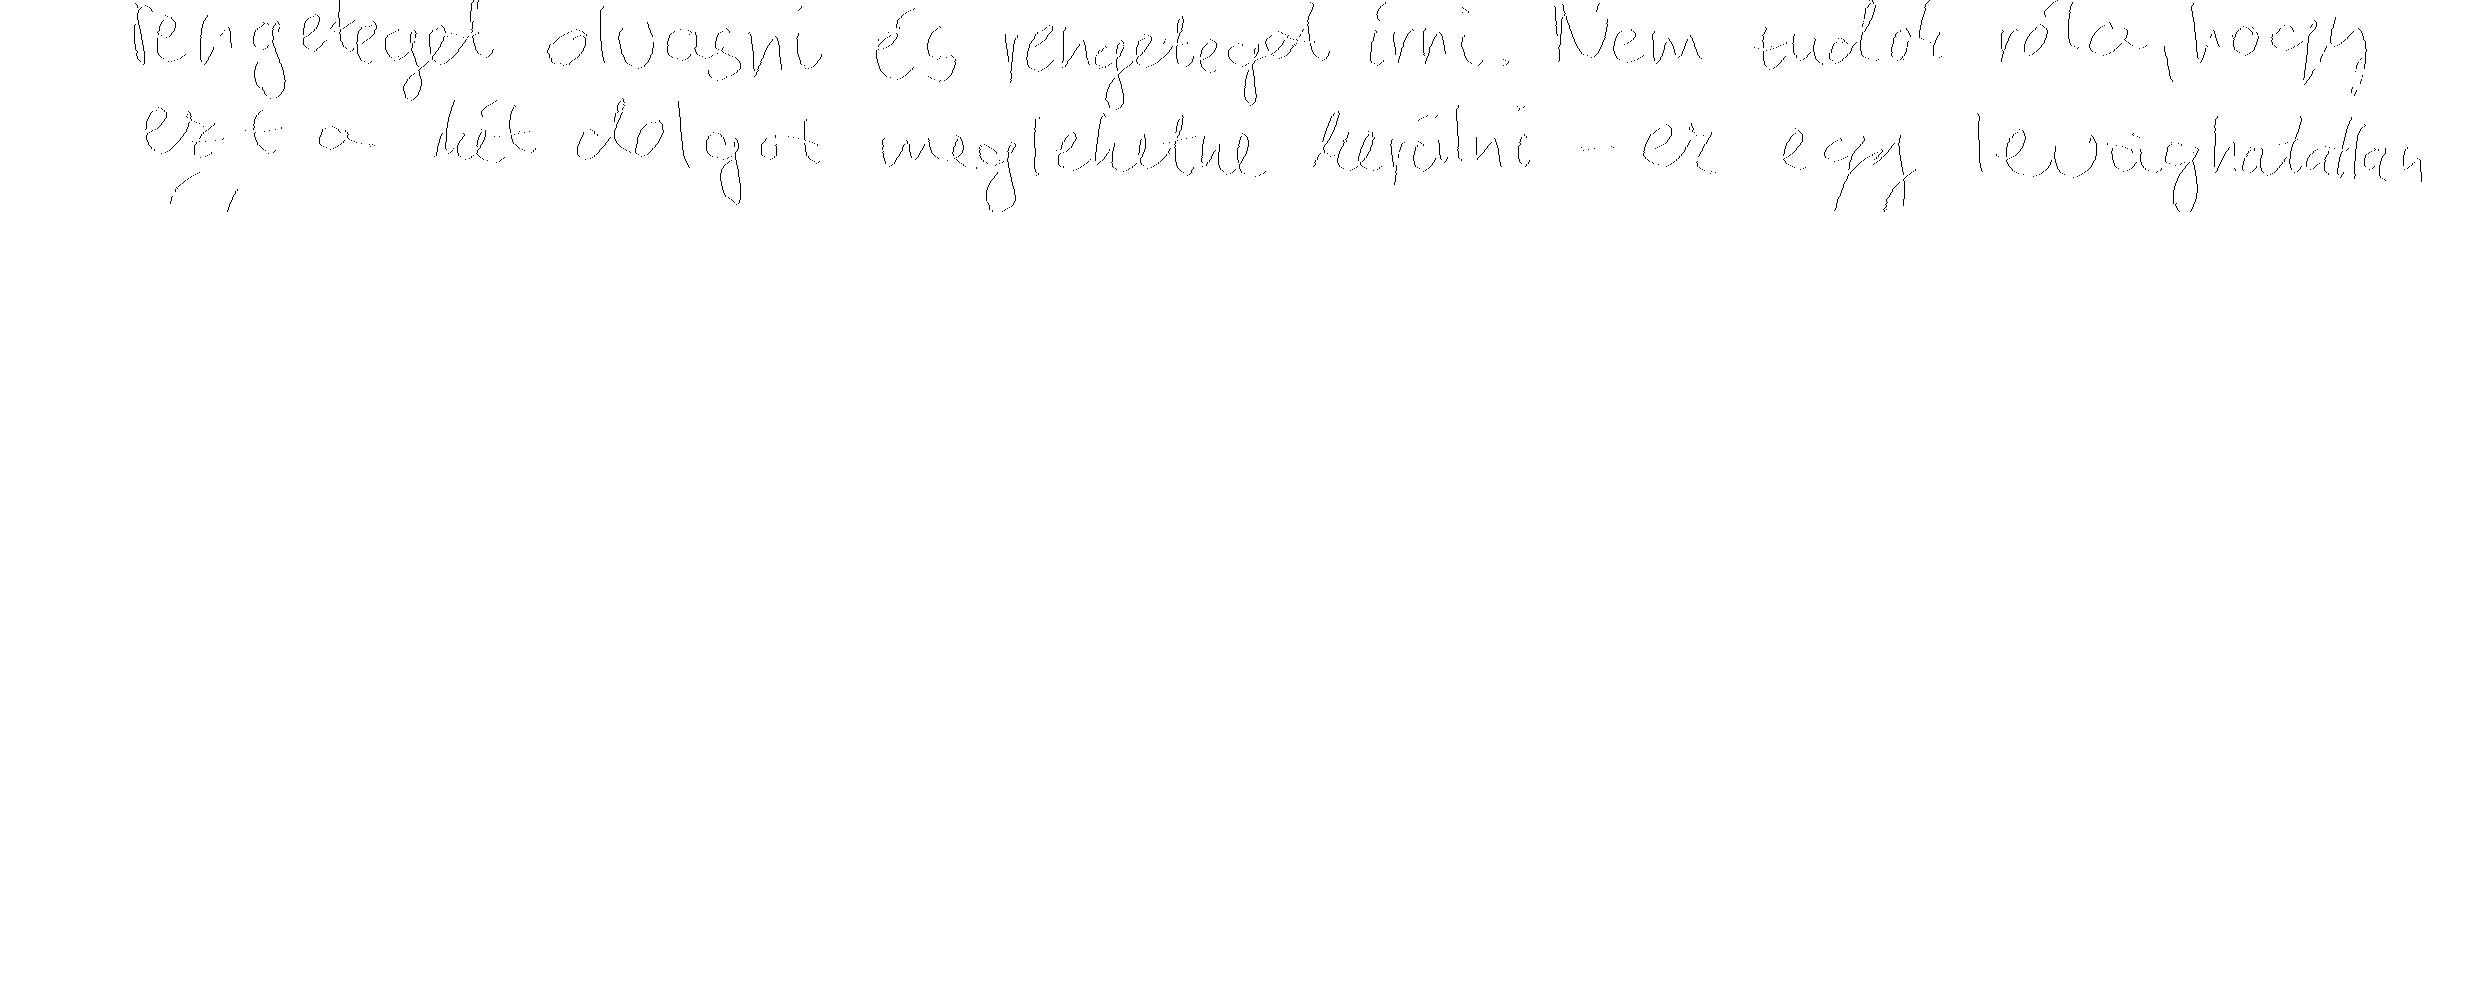 rengeteget olvasni és rengeteget írni. Nem tudok róla, hogy
ezt a két dolgot meglehetne kerülni - ez egy levághatatlan